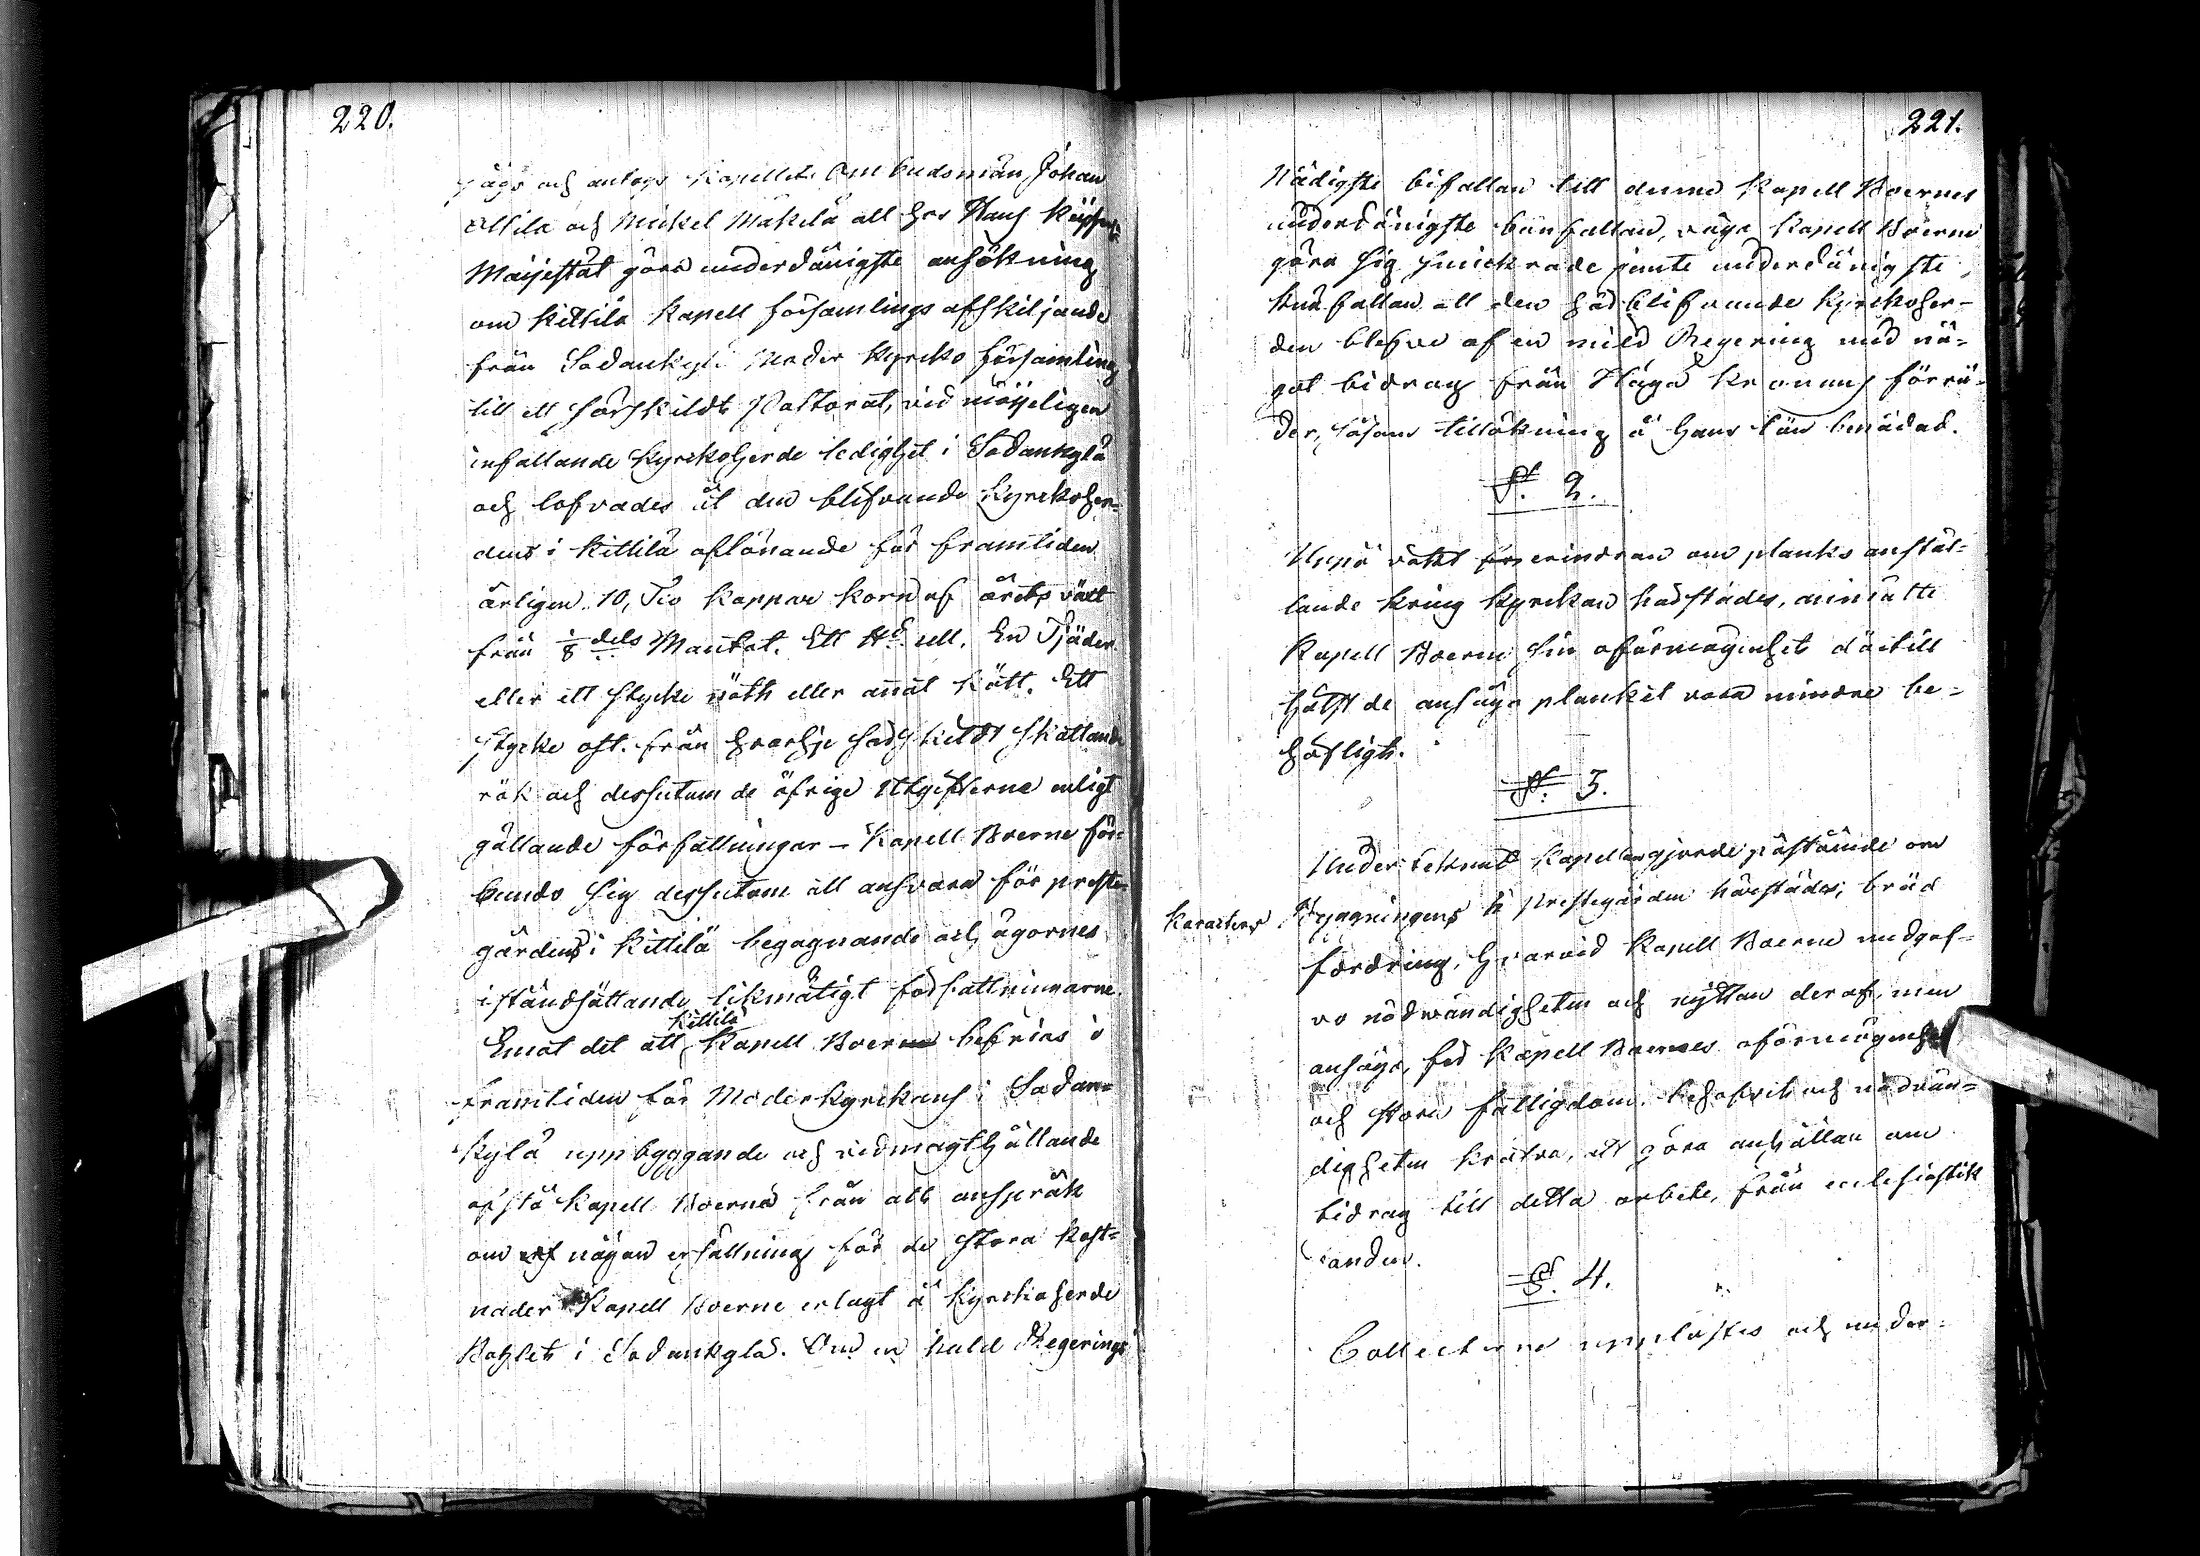 220.
och antogs Kapellets Ombudsmän Johan
Attila och Mickel Mäkelä att hos Hans Kejserl:
Majestät göra underdånigste ansökning
om Kittilä Kapell församlings afskiljande
från Sodankylä Moder Kyrcko församling
till ett särskildt Pastorat, vid möjeligen
infallande Kyrckoherde ledighet i Sodankylä
och lofvades åt den blifvande Kyrckoher-
dens i Kittilä aflönande för framtiden
årligen 10, Tio Kappar Korn af årets växt
från 1/8 dels Mantal. Ett ull. En Tjäder
eller ett stycke nöth eller annat kött. Ett
stycke ost. från hvarhje särskildt skattande
rök och dessutom de öfrige Utgifterne enligt
gällande författningar – Kapell Boerne för-
bundo sig dessutom att ansvara för preste-
gårdens i Kittilä begagnande och ägornes
iståndsättande likmätigt författningarne.
Emot det att Kittilä Kapell Boerne befrias i
framtiden för Moderkyrckans i Sodan-
kylä uppbyggande och vidmagthållande
afstå Kapell Boerne från allt anspråk
om af någon ersättning för de stora kost-
nader Kapell Boerne erlagt å Kyrckoherde
Bohlets i Sodankylä. Om en huld Regerings
221.
Nådigste bifallan till denne Kapell Boernes
underdånigste bönfallan, våga Kapell Boerne
göra sig smickrade jemte underdånigste
bönfallan att den här blifvande Kyrckoher-
den blefve af en mild Regering med nå-
got bidrag från Höga Kronans förrå-
der, såsom tillökning å hans lön benådad.
§. 2.
Uppå väckt erindran om planks anstäl-
lande kring Kyrckan härstädes, ansatte
Kapell Boerne sin oförmögenhet därtill
hälst de ansågo planket vara mindre be-
höfligt.
§. 3.
Undertecknad Kapellan gjorde påstående om
Karactens Byggningens å Prestegården härstädes, bräd
fordring, hvarvid Kapell Boerne medgaf-
vo nödvändigheten och nyttan deraf, men
ansågo, för Kapell Boernes oförmögenhet
och stora fattigdom, behofvit och nödvän-
digheten kräfva, att göra anhållan om
bidrag till detta arbete, från ecclesiastik
fonden.
§. 4.
Collecterne upplästes och under-